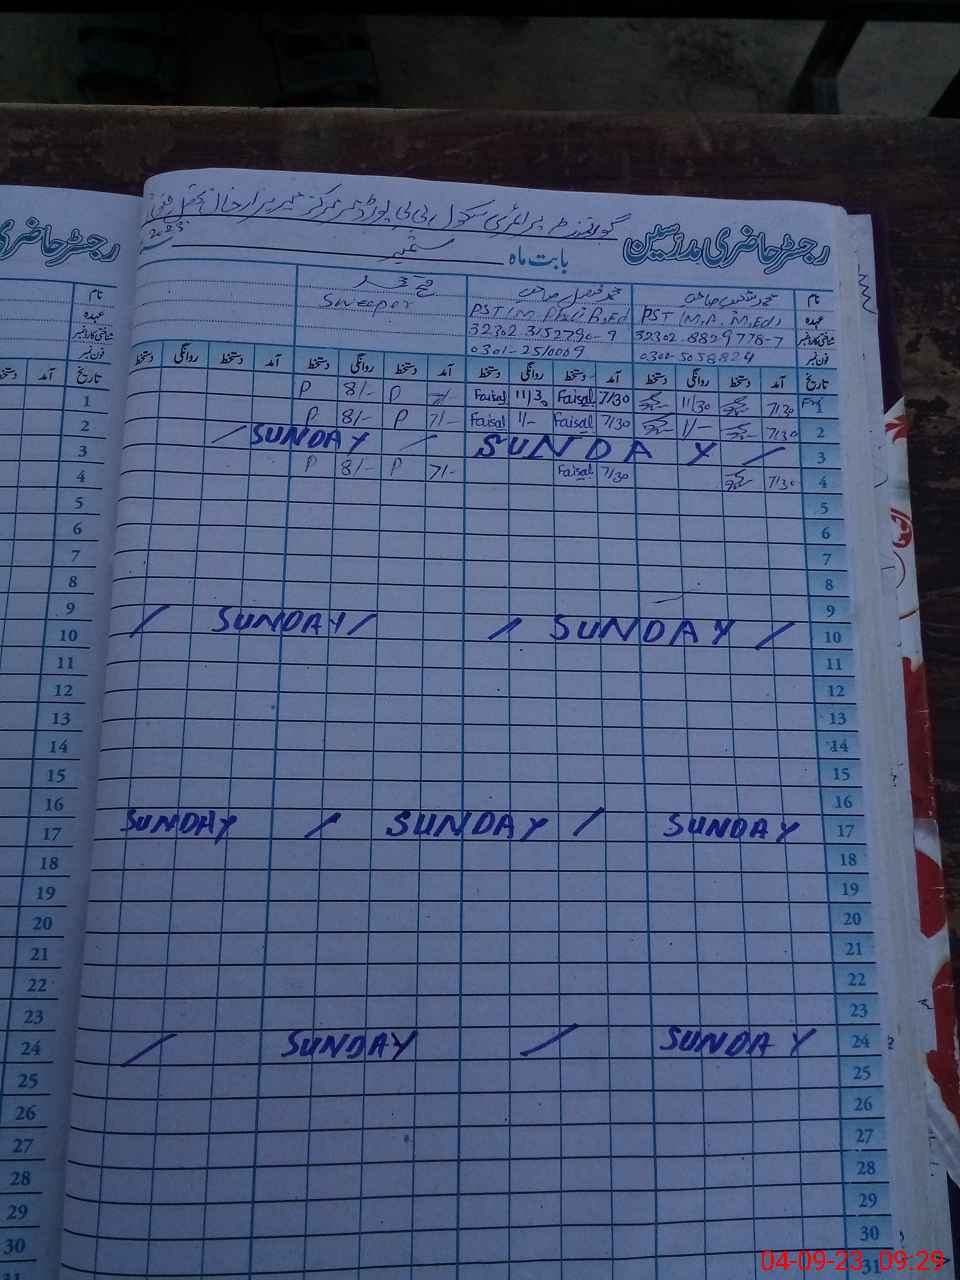 رجسٹر حاضری مدرسین
گورنمنٹ پرائمری سکول
بابت ماہ ستمبر 2023
نام
محمد فیصل صاحب
عہدہ PST (M.A, M.Ed)
Sweeper
شناختی کارڈ نمبر 32302.8829778-7
32302.3152790-9
فون نمبر
تاریخ آمد دستخط روانگی دستخط آمد دستخط روانگی دستخط آمد دستخط روانگی دستخط آمد دستخط روانگی دستخط
1 7/30 11/30 7/30 Faisal 11/30 Faisal P 8/- P
2 7/30 1/- 7/30 Faisal 1/- Faisal 7/- P 8/- P
3 SUNDAY / / SUNDAY /
4 7/30 7/30 Faisal 7/- P 8/- P
5
6
7
8
9
10 / SUNDAY / / SUNDAY /
11
12
13
14
15
16
17 SUNDAY / SUNDAY / SUNDAY
18
19
20
21
22
23
24 / SUNDAY / SUNDAY
25
26
27
28
29
30
31
رجسٹر حاضری
نام
عہدہ
شناختی کارڈ نمبر
فون نمبر
تاریخ آمد
1
2
3
4
5
6
7
8
9
10
11
12
13
14
15
16
17
18
19
20
21
22
23
24
25
26
27
28
29
30
31
04-09-23 09:29